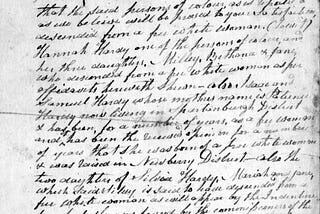 that the said persons of colour, as is
as we believe will be proved to your
descended from a free white woman.
Hannah Hardy one of the persons of color, and
her three daughters, Milley, Bethana & fany
who descended from a free white woman as per
affidavits herewith shewn - also Isaac and
Samuel Hardy whose mothers name is
Hardy now living in District
& has been, for a number of years, as a free woman
and, has been the received opinion for a number
of years that she was born of a free white woman
& was raised in Newberry District - also the
two daughters of Hardy, Mariah and fany,
which said is said to have descended from a
free white woman as will appear by the Indenture
by the commissioners of the